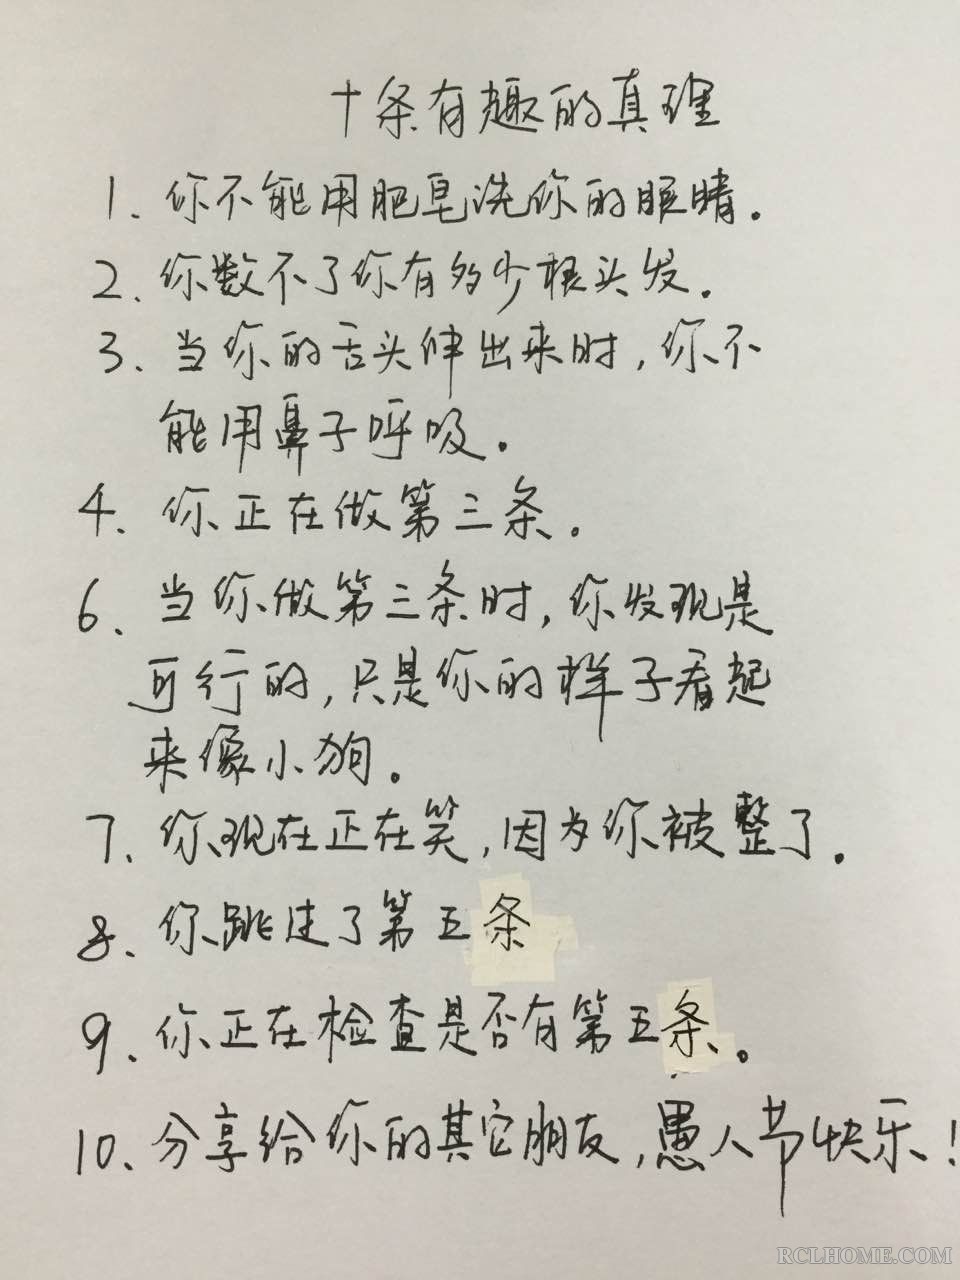 十条有趣的真理
1. 你不能用肥皂洗你的眼睛.
2. 你数不了你有多少根头发.
3. 当你的舌头伸出来时, 你不
能用鼻子呼吸.
4. 你正在做第三条.
6. 当你做第三条时, 你发现是
可行的, 只是你的样子看起
来像小狗.
7. 你现在正在笑, 因为你被整了.
8. 你跳过了第五条
9. 你正在检查是否有第五条.
10. 分享给你的其它朋友, 愚人节快乐!
RCLHOME.COM